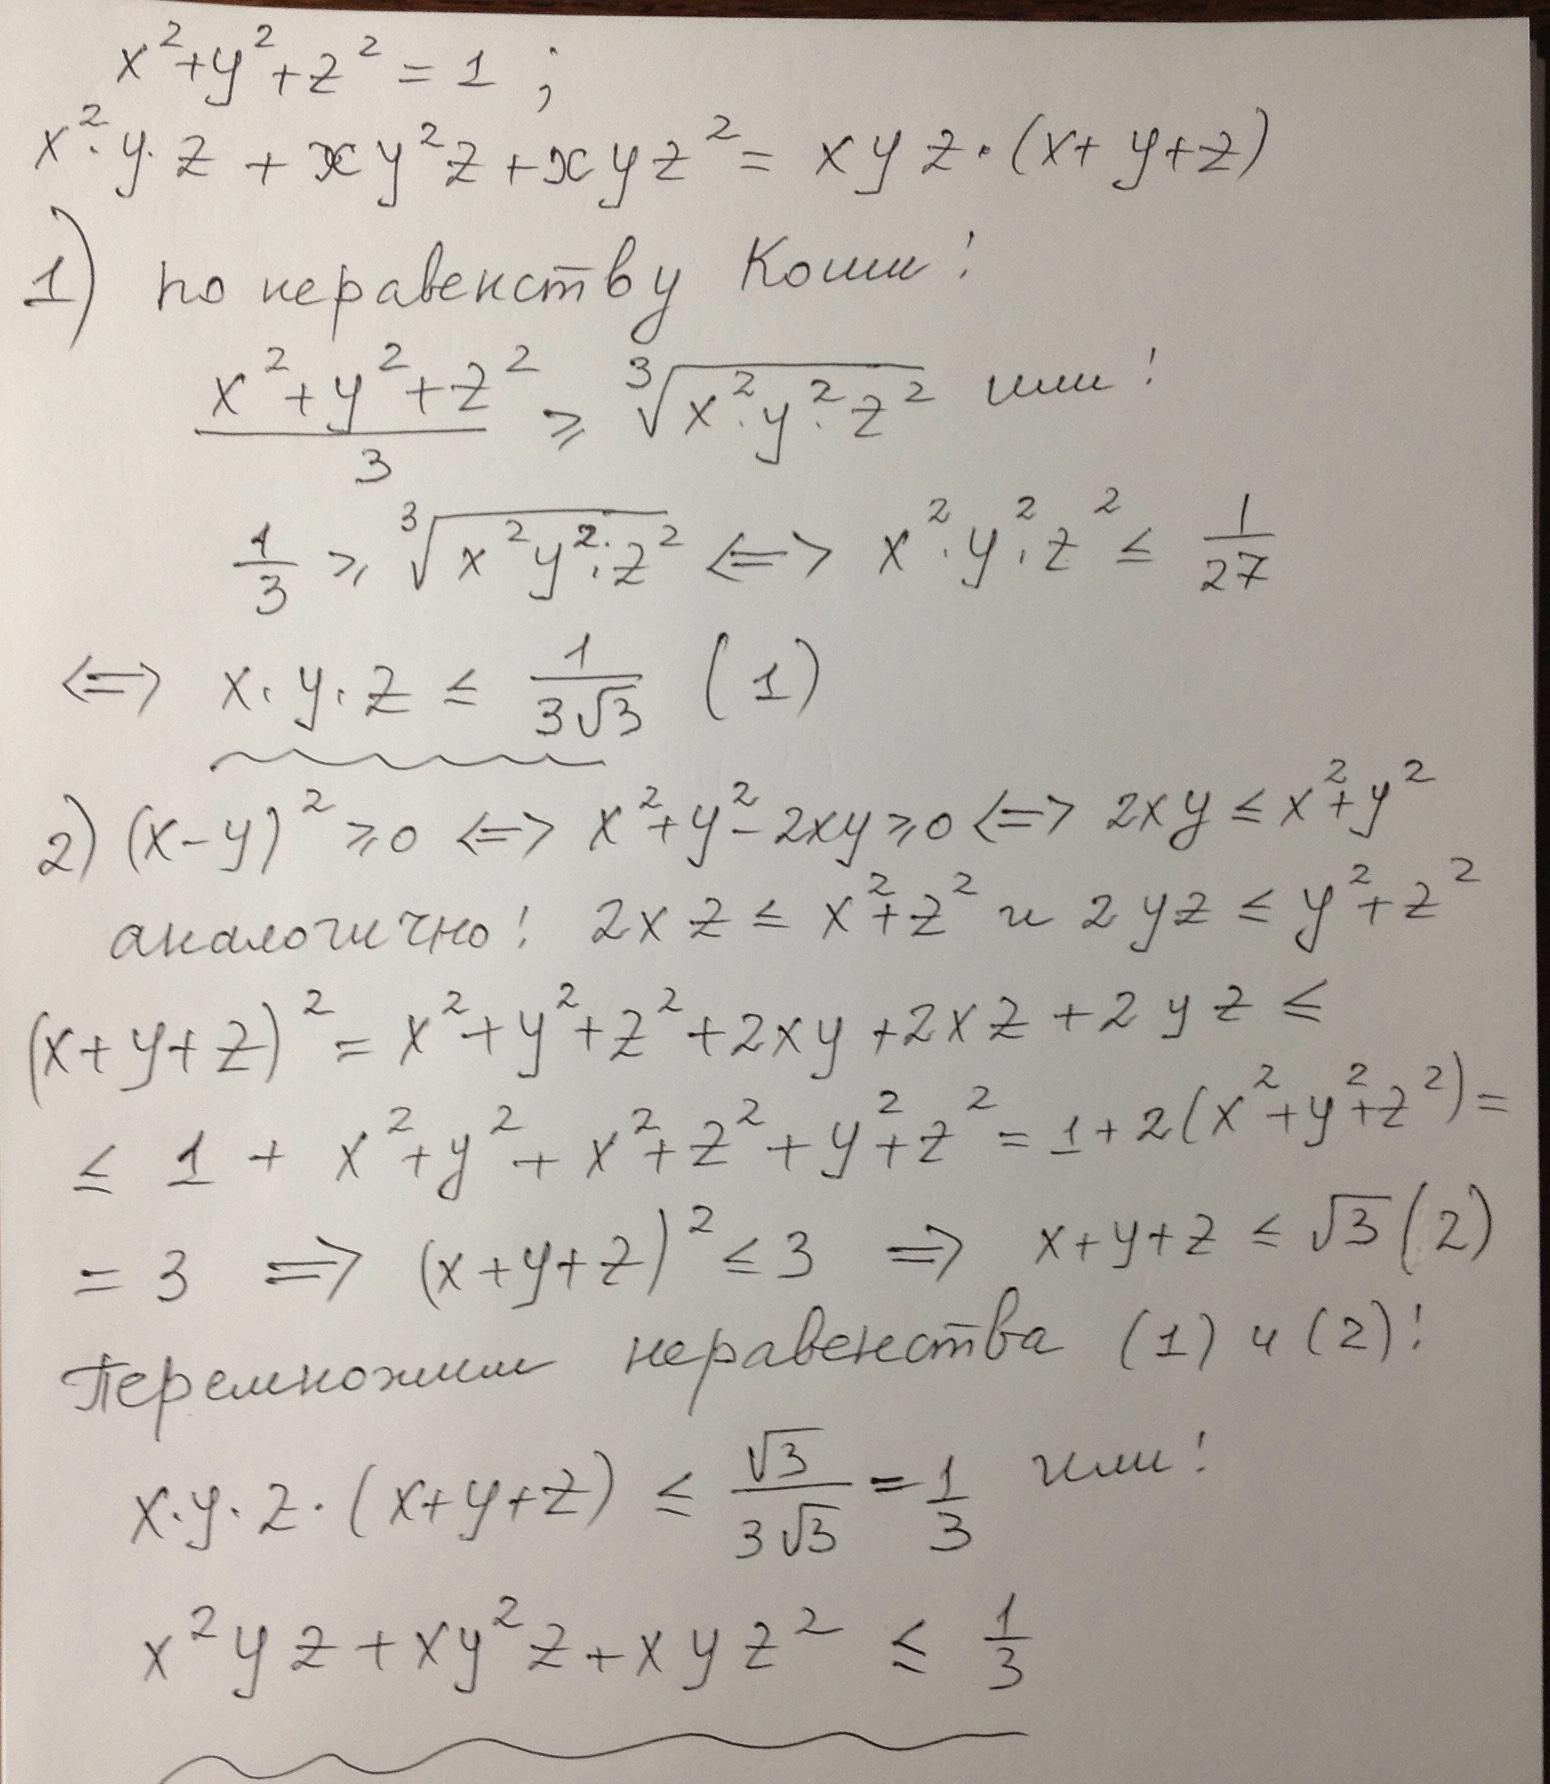 x²+y²+z² = 1 ;
x²·y·z + xy²z + xyz² = xyz·(x+y+z)
1) по неравенству Коши:
(x²+y²+z²)/3 ≥ ∛(x²·y²·z²) или:
1/3 ≥ ∛(x²y²·z²) <=> x²·y²·z² ≤ 1/27
<=> x·y·z ≤ 1/(3√3) (1)
2) (x-y)² ≥ 0 <=> x²+y²-2xy ≥ 0 <=> 2xy ≤ x²+y²
аналогично: 2xz ≤ x²+z² и 2yz ≤ y²+z²
(x+y+z)² = x²+y²+z²+2xy+2xz+2yz ≤
≤ 1 + x²+y² + x²+z² + y²+z² = 1+2(x²+y²+z²) =
= 3 => (x+y+z)² ≤ 3 => x+y+z ≤ √3 (2)
Перемножим неравенства (1) и (2):
x·y·z·(x+y+z) ≤ √3/(3√3) = 1/3 или:
x²yz + xy²z + xyz² ≤ 1/3